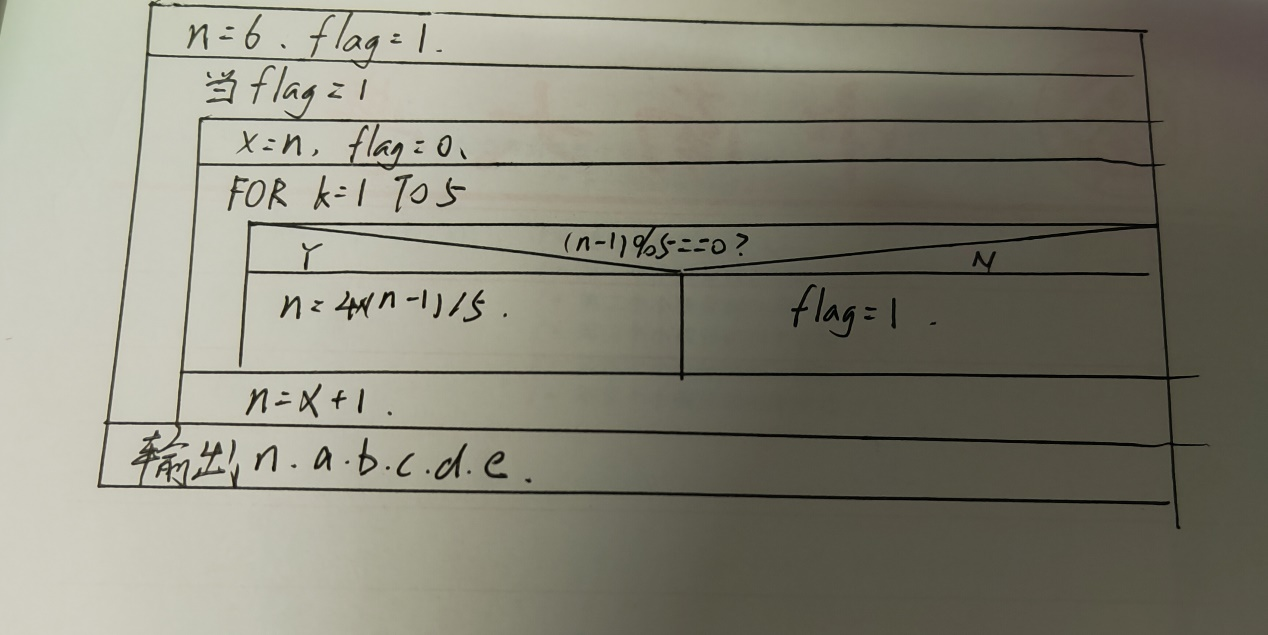 n=6. flag=1.
当flag=1
x=n, flag=0、
FOR k=1 TO 5
(n-1)%5==0?
Y
N
n=4*(n-1)/5.
flag=1.
n=x+1.
输出n.a.b.c.d.e.